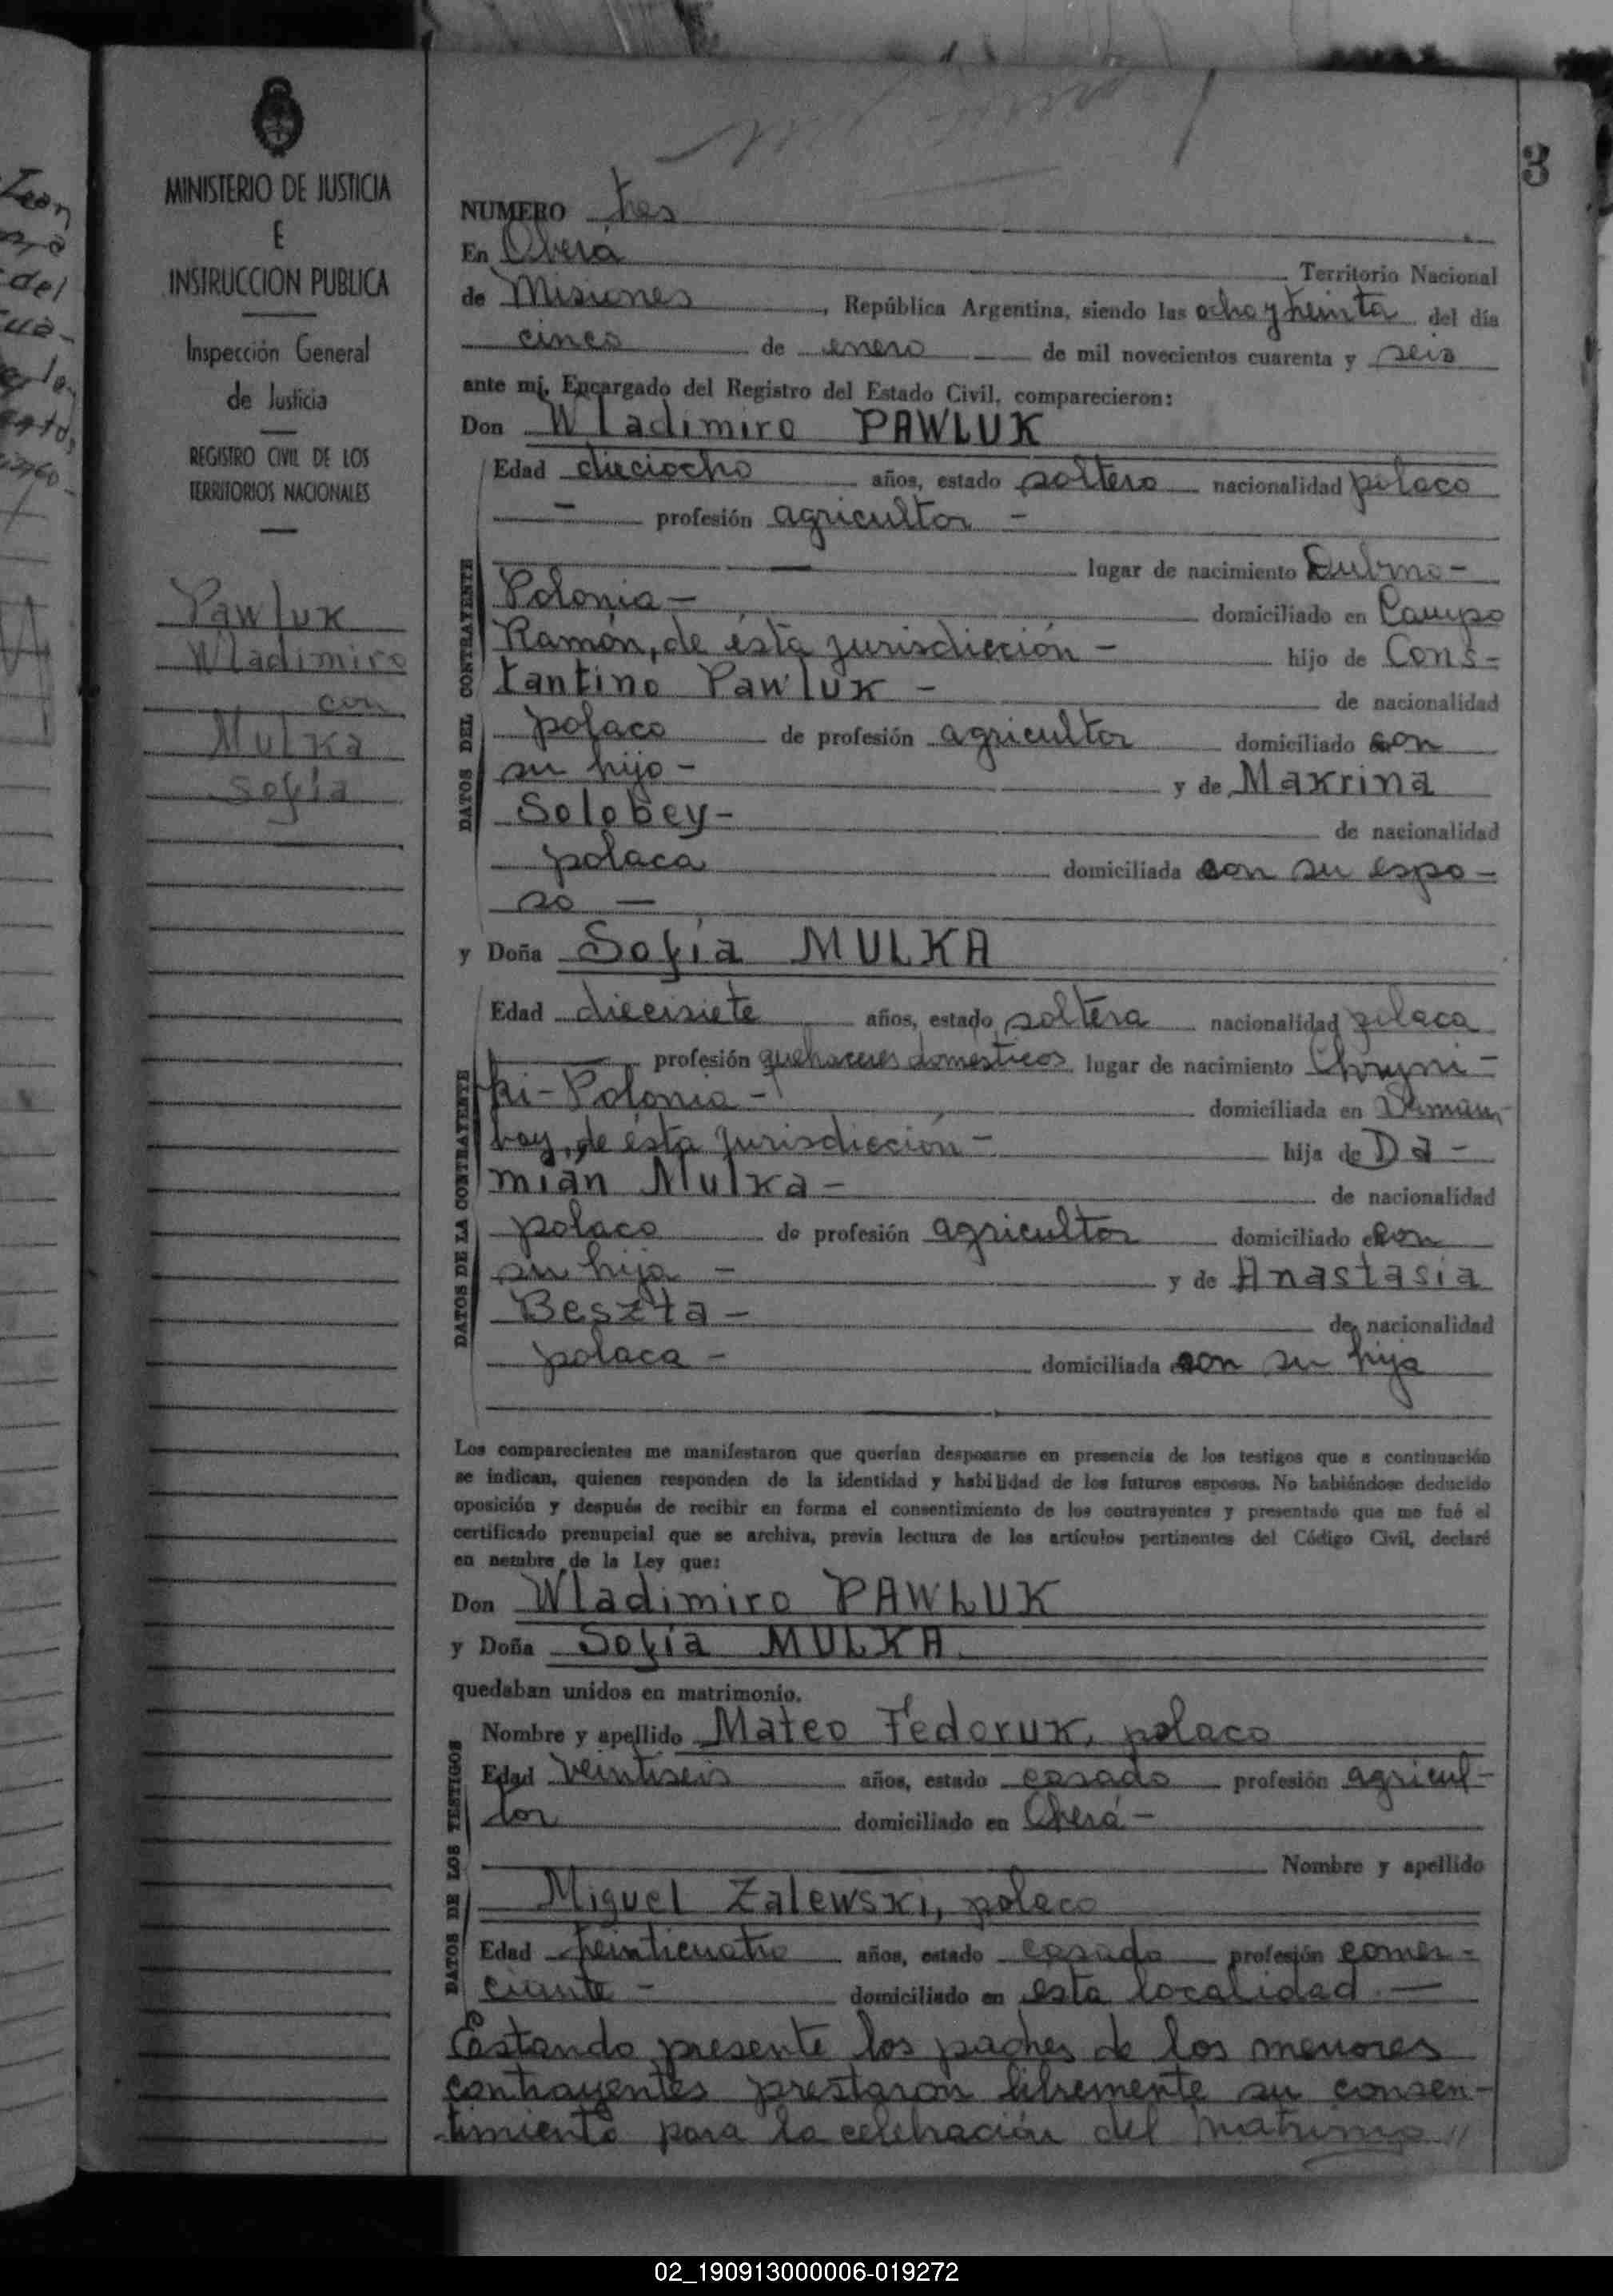 MINISTERIO DE JUSTICIA
E
INSTRUCCION PUBLICA
Inspección General
de Justicia
REGISTRO CIVIL DE LOS
TERRITORIOS NACIONALES
Pawluk
Wladimiro
con
Mulka
Sofía
3
NUMERO tres
En Oberá Territorio Nacional
de Misiones, República Argentina, siendo las ocho y treinta del día
cinco de enero de mil novecientos cuarenta y seis
ante mí, Encargado del Registro del Estado Civil, comparecieron:
Don Wladimiro PAWLUK
Edad dieciocho años, estado soltero nacionalidad polaco
— profesión agricultor —
DATOS DEL CONTRAYENTE
— lugar de nacimiento Dubno-
Polonia - domiciliado en Campo
Ramón, de ésta jurisdicción - hijo de Cons-
tantino Pawluk - de nacionalidad
polaco de profesión agricultor domiciliado con
su hijo - y de Makrina
Solobey - de nacionalidad
polaca domiciliada con su espo-
so —
y Doña Sofía MULKA
Edad diecisiete años, estado soltera nacionalidad polaca
profesión quehaceres domesticos lugar de nacimiento Chryni-
ki - Polonia - domiciliada en
bay, de ésta jurisdicción - hija de Da-
DATOS DE LA CONTRAYENTE
mián Mulka - de nacionalidad
polaco de profesión agricultor domiciliado con
su hija - y de Anastasia
Beszta - de nacionalidad
polaca - domiciliada con su hija
Los comparecientes me manifestaron que querían desposarse en presencia de los testigos que a continuación
se indican, quienes responden de la identidad y habilidad de los futuros esposos. No habiéndose deducido
oposición y después de recibir en forma el consentimiento de los contrayentes y presentado que me fué el
certificado prenupcial que se archiva, previa lectura de los artículos pertinentes del Código Civil, declaré
en nombre de la Ley que:
Don Wladimiro PAWLUK
y Doña Sofía MULKA
quedaban unidos en matrimonio.
DATOS DE LOS TESTIGOS
Nombre y apellido Mateo Fedoruk, polaco
Edad veintiseis años, estado casado profesión agricul-
tor domiciliado en Oberá -
Nombre y apellido
Miguel Zalewski, polaco
Edad treinticuatro años, estado casado profesión comer-
ciante - domiciliado en esta localidad. —
Estando presente los padres de los menores
contrayentes prestaron libremente su consen-
timiento para la celebración del matrimo //
02_190913000006-019272